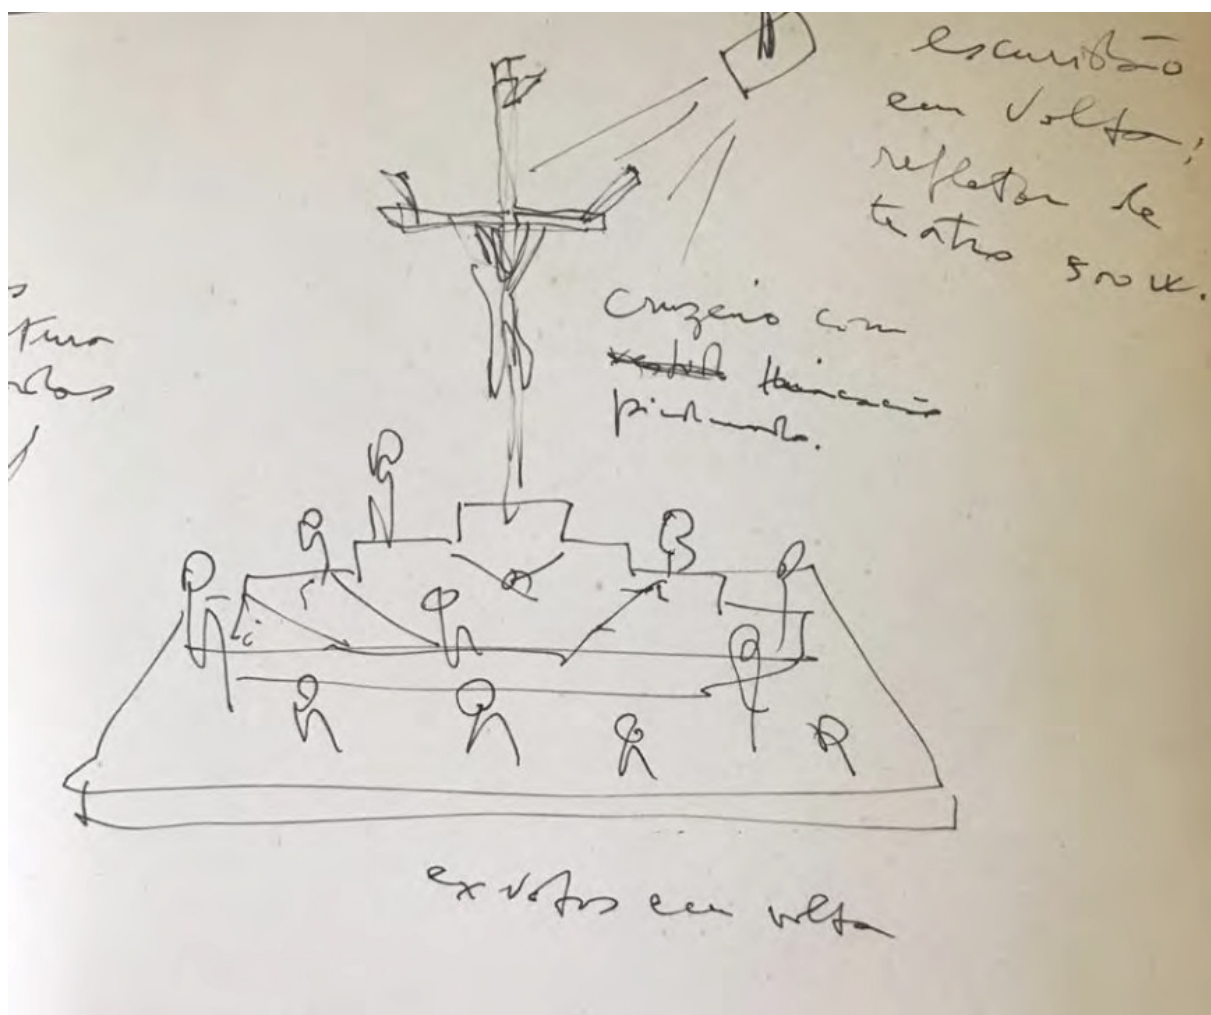 escuridão
em volta;
refletor de
teatro 500 W.
cruzeiro com
pinturada.
tura
ex votos em volta